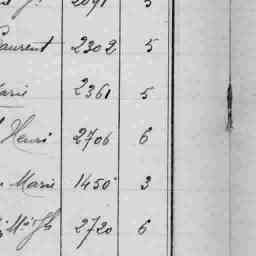 2091 5
Laurent 2302 5
Marie 2361 5
Henri 2706 6
Marie 1450 3
2720 6